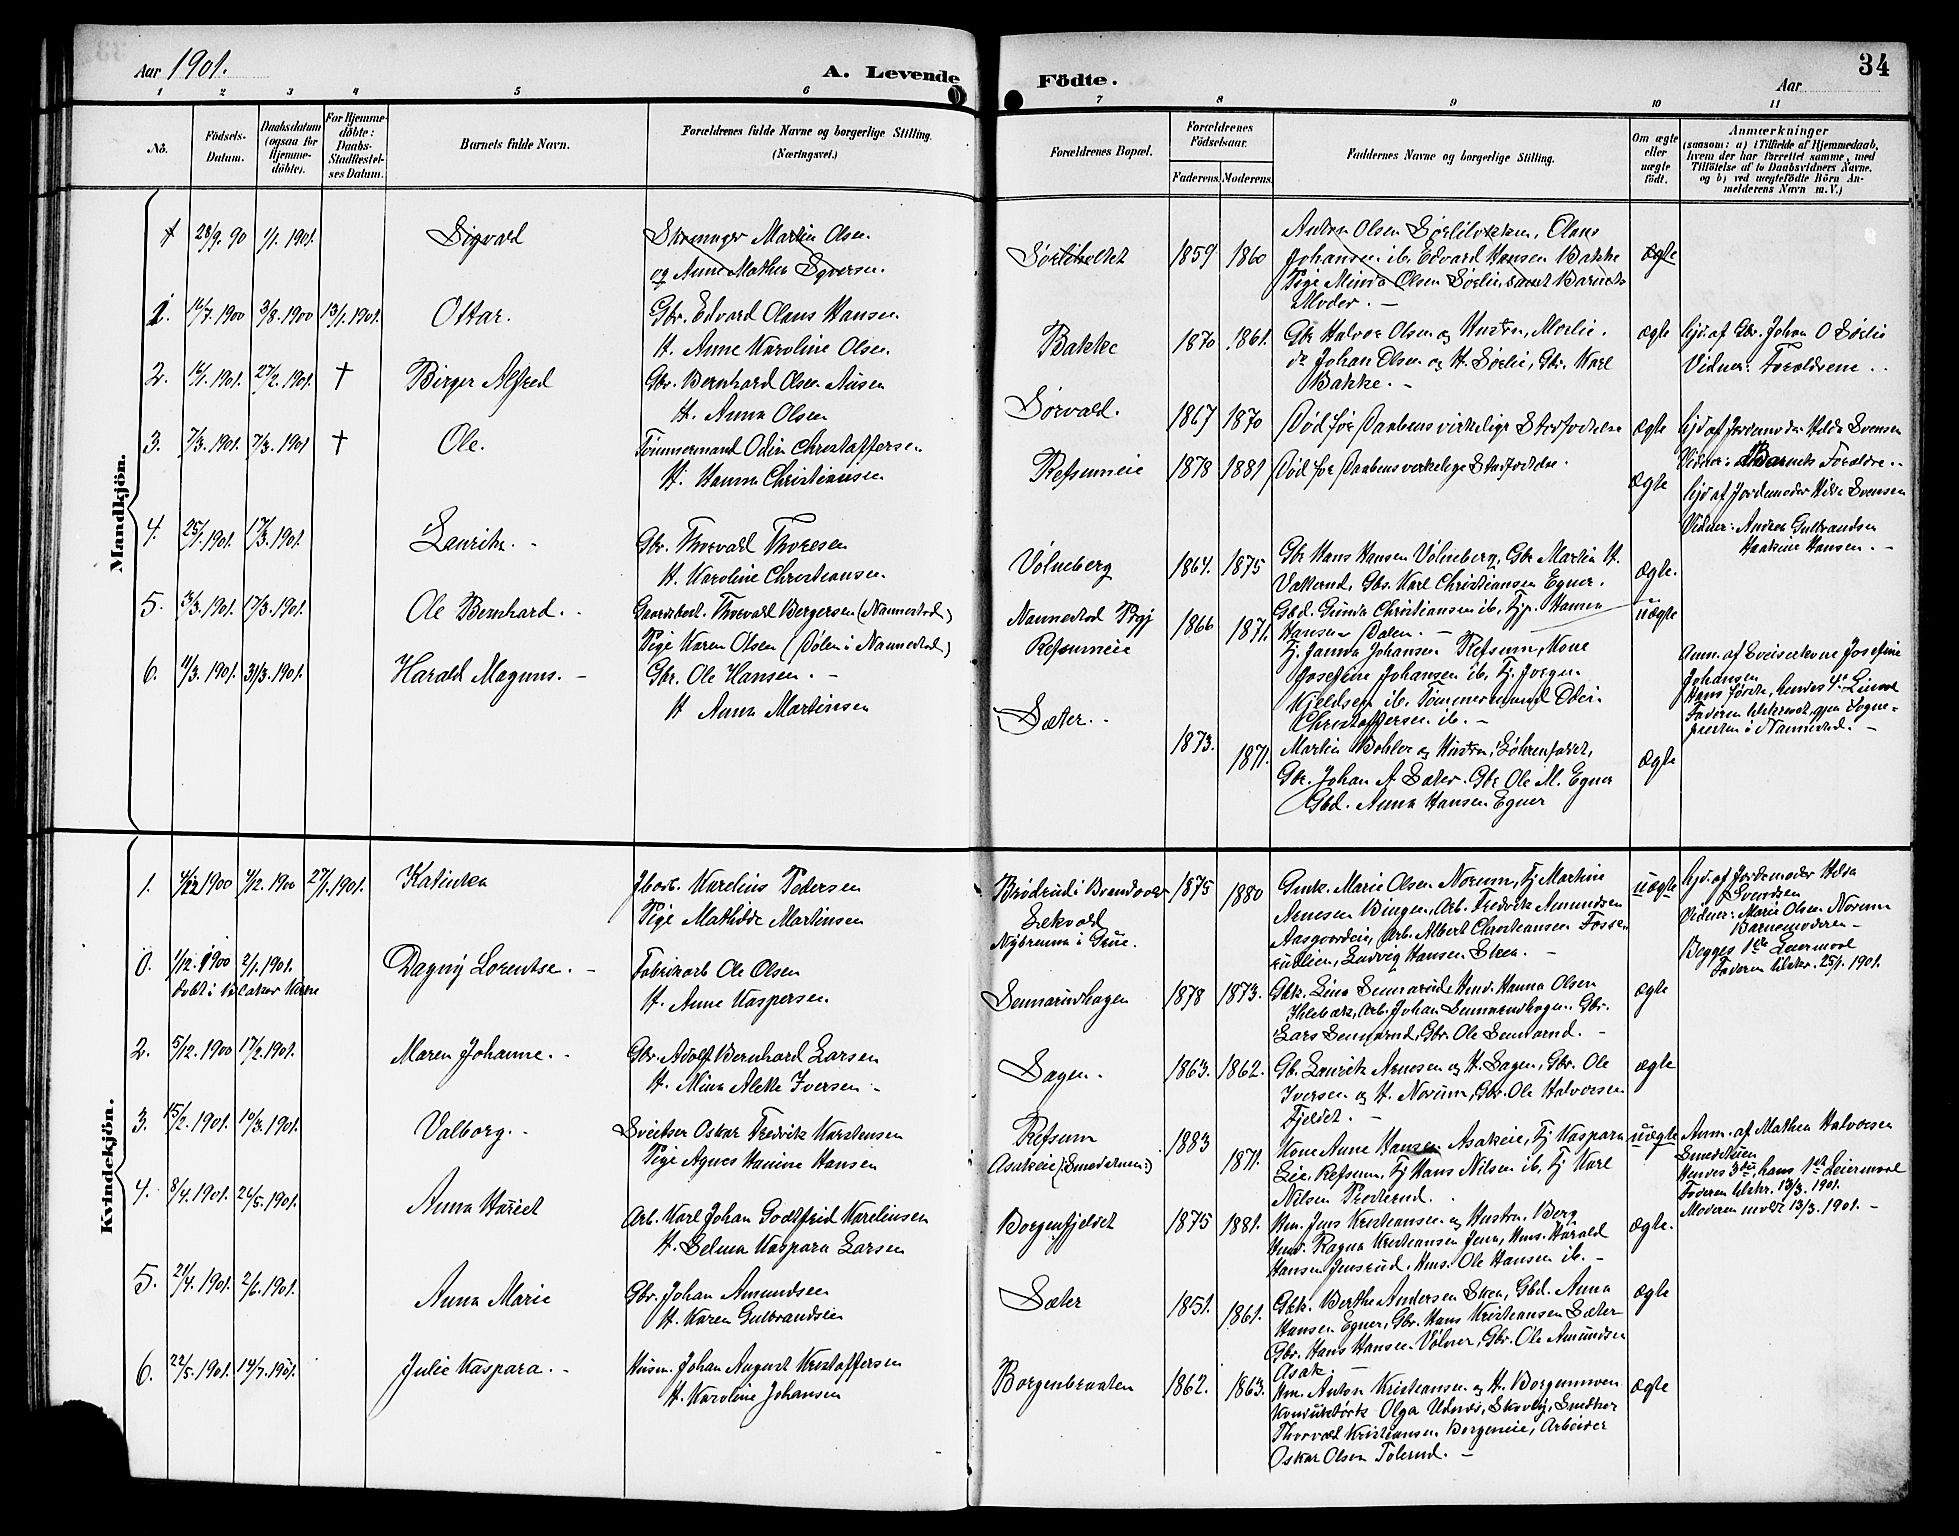 Aar 1901.
A. Levende
Födte.
Aar
34
1 2 3 4 5 6 7 8 9 10 11
No.
Födsels-
Datum.
Daabsdatum
(ogsaa for
Hjemme-
döbte).
For Hjemme-
döbte:
Daabs-
Stadfæstel-
ses Datum.
Barnets fulde Navn.
Forældrenes fulde Navne og borgerlige Stilling.
(Næringsvei.)
Forældrenes Bopæl.
Forældrenes
Födselsaar.
Faderens. Moderens.
Faddernes Navne og borgerlige Stilling.
Om ægte
eller
uægte
födt.
Anmærkninger
(saasom: a) i Tilfælde af Hjemmedaab,
hvem der har forrettet samme, med
Tilföielse af to Daabsvidners Navne.
og b) ved uægtefödte Börn An-
melderens Navn m. V.)
Mandkjön.
28/9. 90 1/1. 1901. Sigvald
Martin Olsen
og Anne Mathea Syversen
1859 1860
Anton Olsen Olaus
Johansen ib. Edvard Hansen Bakke
Pige Minda Olsen Sørlie, samt Barnets
Moder. –
ægte
1. 16/7. 1900 3/8. 1900 13/1. 1901. Ottar.
Gbr. Edvard Olaus Hansen
H. Anne Karoline Olsen
Bakke
1870 1861.
Gbr Halvor Olsen og Hustru, Morlie.
do Johan Olsen og H. Sørlie, Gbr. Karl
Bakke. –
ægte
hjd. af Gbr. Johan O Sørlie
Vidner: Forældrene
2. 14/1. 1901. 27/2. 1901. † Birger Alfred
Gbr. Bernhard Olsen Aasen
H. Anna Olsen
Sørvald.
1867 1870
Død før Daabens virkelige Stadfæstelse
ægte
hjd af Jordemoder Hilda Svensen
Vidner: Barnets Forældre.
3. 7/3. 1901. 7/3. 1901 † Ole.
Tømmermand Odin Christoffersen
H. Hanna Christiansen
Refsumeie
1878 1881
Død før Daabens virkelige Stadfæstelse.
ægte
hjd af Jordemoder Hilda Svensen
Vidner: Andrea Gulbrandsen
Hansen. –
4. 25/1. 1901. 17/3. 1901. Lauritz. –
Gbr. Thorvald Thoresen
H. Karoline Christiansen
Vølneberg
1864. 1875
Gbr Hans Hansen Vølneberg, Gbr Martin H.
Vallerud, Gbs. Karl Christiansen Egner.
Gbd. Gunda Christiansen ib, Tjp. Hanna
Hansen Dalen. –
ægte.
5. 3/3. 1901. 17/3. 1901. Ole Bernhard. –
Thorvald Bergersen (Nannestad)
Pige Karen Olsen (Dølen i Nannestad)
Nannestad Prgj
Refsumeie
1866 1871.
Tj. Janna Johansen Refsum, Kone
Josefine Johansen ib. Tj. Jørgen
Kjeldsen ib. Tømmermand Odin
Christoffersen ib. –
uægte
Anm. af Sveiserkone Josefine
Johansen
Hans første, hendes 4de Leierm.
Faderen gjn Sogne-
presten i Nannestad. –
6. 11/3. 1901. 31/3. 1901. Harald Magnus. –
Gbr. Ole Hansen. –
H Anna Martinsen
Sæter. –
1873. 1871.
Martin Bøhler og Hustru,
Gbr. Johan A. Sæter. Gbr Ole M. Egner
Gbd. Anna Hansen Egner
ægte
Kvindekjön.
1. 4/12 1900 4/12. 1900 27/1. 1901. Katinka
Karelius Pedersen
Pige Mathilde Martinsen
Brødrud i
Lekvold
i Grue.
1875 1880
Gmk. Marie Olsen Norum, Tj Martine
Arnesen Bingen, Arb. Fredrik Amundsen
Aasgaardeie, Arb. Albert Christiansen Fosse-
rudlien, Ludvig Hansen Skea. –
uægte
hjd. af Jordemoder Hilda
Svendsen
Vidner: Marie Olsen Norum
Barnemoderen –
Begges 1ste Leiermaal
Faderen tilskr. 25/1. 1901.
0. 1/12. 1900 2/1. 1901. Dagny Lorentse. –
Døbt i
Fabrikarb Ole Olsen
H. Anne Kaspersen
Sennerudhagen
1878 1873.
Gbk. Lina Sennerud, Hmd. Hanna Olsen
Arb. Johan Sennerudhagen. Gbr.
Lars Sennerud, Gbr. Ole Sennerud. –
ægte
2. 5/12. 1900 17/2. 1901. Maren Johanne. –
Gbr. Adolf Bernhard Larsen
H. Mina Alette Iversen –
Sagen. –
1863. 1862.
Gb. Laurits Arnesen og H. Sagen, Gbr. Ole
Iversen og H. Norum, Gbr. Ole Halvorsen
Fjeldet. –
ægte
3. 15/2. 1901. 10/3. 1901. Valborg. –
Sveitser Oskar Fredrik Karstensen
Pige Agnes Hansen
Refsum
Asakeie
1883 1871.
Kone Anne Hansen Asakeie, Tj Kaspara
Lie, Refsum, Tj Hans Nilsen ib, Tj Karl
Nilsen
uægte
Anm. af Mathea Halvorsen
Hendes 3die, hans 1ste Leiermaal
Faderen tilskr. 13/3. 1901.
Moderen 13/3. 1901. –
4. 8/4. 1901. 26/5. 1901. Anna Hariet
Arb. Karl Johan Godtfrid Karelinsen
H. Selma Kaspara Larsen
Borgenfjeldet
1875 1881.
Hm. Jens Kristiansen og Hustru. Berg
Hmd. Ragna Kristiansen Hms. Harald
Hansen Jensrud, Hms. Ole Hansen ib. –
ægte.
5. 21/4. 1901. 2/6. 1901. Anna Marie
Gbr. Johan Amundsen
H. Karen Gulbrandsen
Sæter
1851. 1861.
Gbk. Berthe Andersen Skea, Gbd. Anna
Hansen Egner, Gbr. Hans Kristiansen Sæter
Gbr. Hans Hansen Vølner, Gbr. Ole Amundsen
Asak. –
ægte
6. 22/5. 1901. 14/7. 1901. Julie Kaspara. –
Husm. Johan August Kristoffersen
H. Karoline Johansen
Borgenbraaten
1862. 1863.
Hm. Anton Kristiansen og H. Borgenmoen
Olga Udnæs, Skovby, Snedker
Thorvald Kristiansen Borgeneie, Arbeider
Oskar Olsen Tolerud. –
ægte